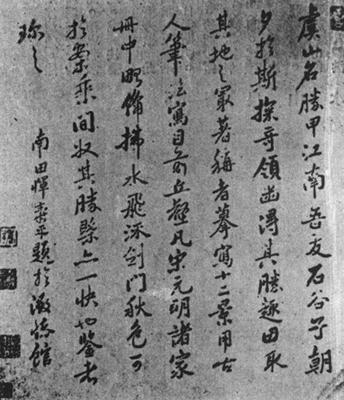 虞山名勝甲江南吾友石谷子朝
夕於斯探奇領幽得其勝趣因取
其地之最著稱者摹寫十二景用古
人筆法寫目前丘壑凡宋元明諸家
冊中畧備拂水飛流劍門秋色可
於案乘間收其勝槩亦一快也鑒者
珍之
南田惲壽平題於激梅館